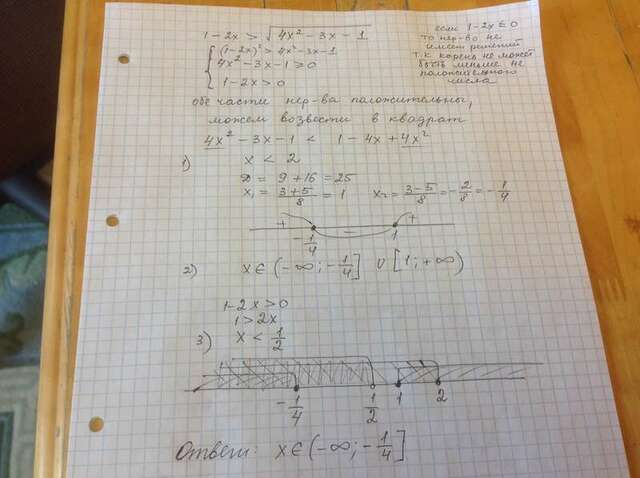 1-2x > √(4x² - 3x - 1)
{ (1-2x)² > 4x² - 3x - 1
4x² - 3x - 1 ≥ 0
1-2x > 0
если 1-2x ≤ 0
то нер-во не
имеет решений
т.к корень не может
быть меньше не
положительного
числа
обе части нер-ва положительны,
можем возвести в квадрат
4x² - 3x - 1 < 1 - 4x + 4x²
1) x < 2
D = 9 + 16 = 25
x₁ = (3+5)/8 = 1 x₂ = (3-5)/8 = -2/8 = -1/4
+ - +
-1/4 1
2) x ∈ (-∞; -1/4] ∪ [1; +∞)
1-2x > 0
1 > 2x
3) x < 1/2
-1/4 1/2 1 2
Ответ: x ∈ (-∞; -1/4]